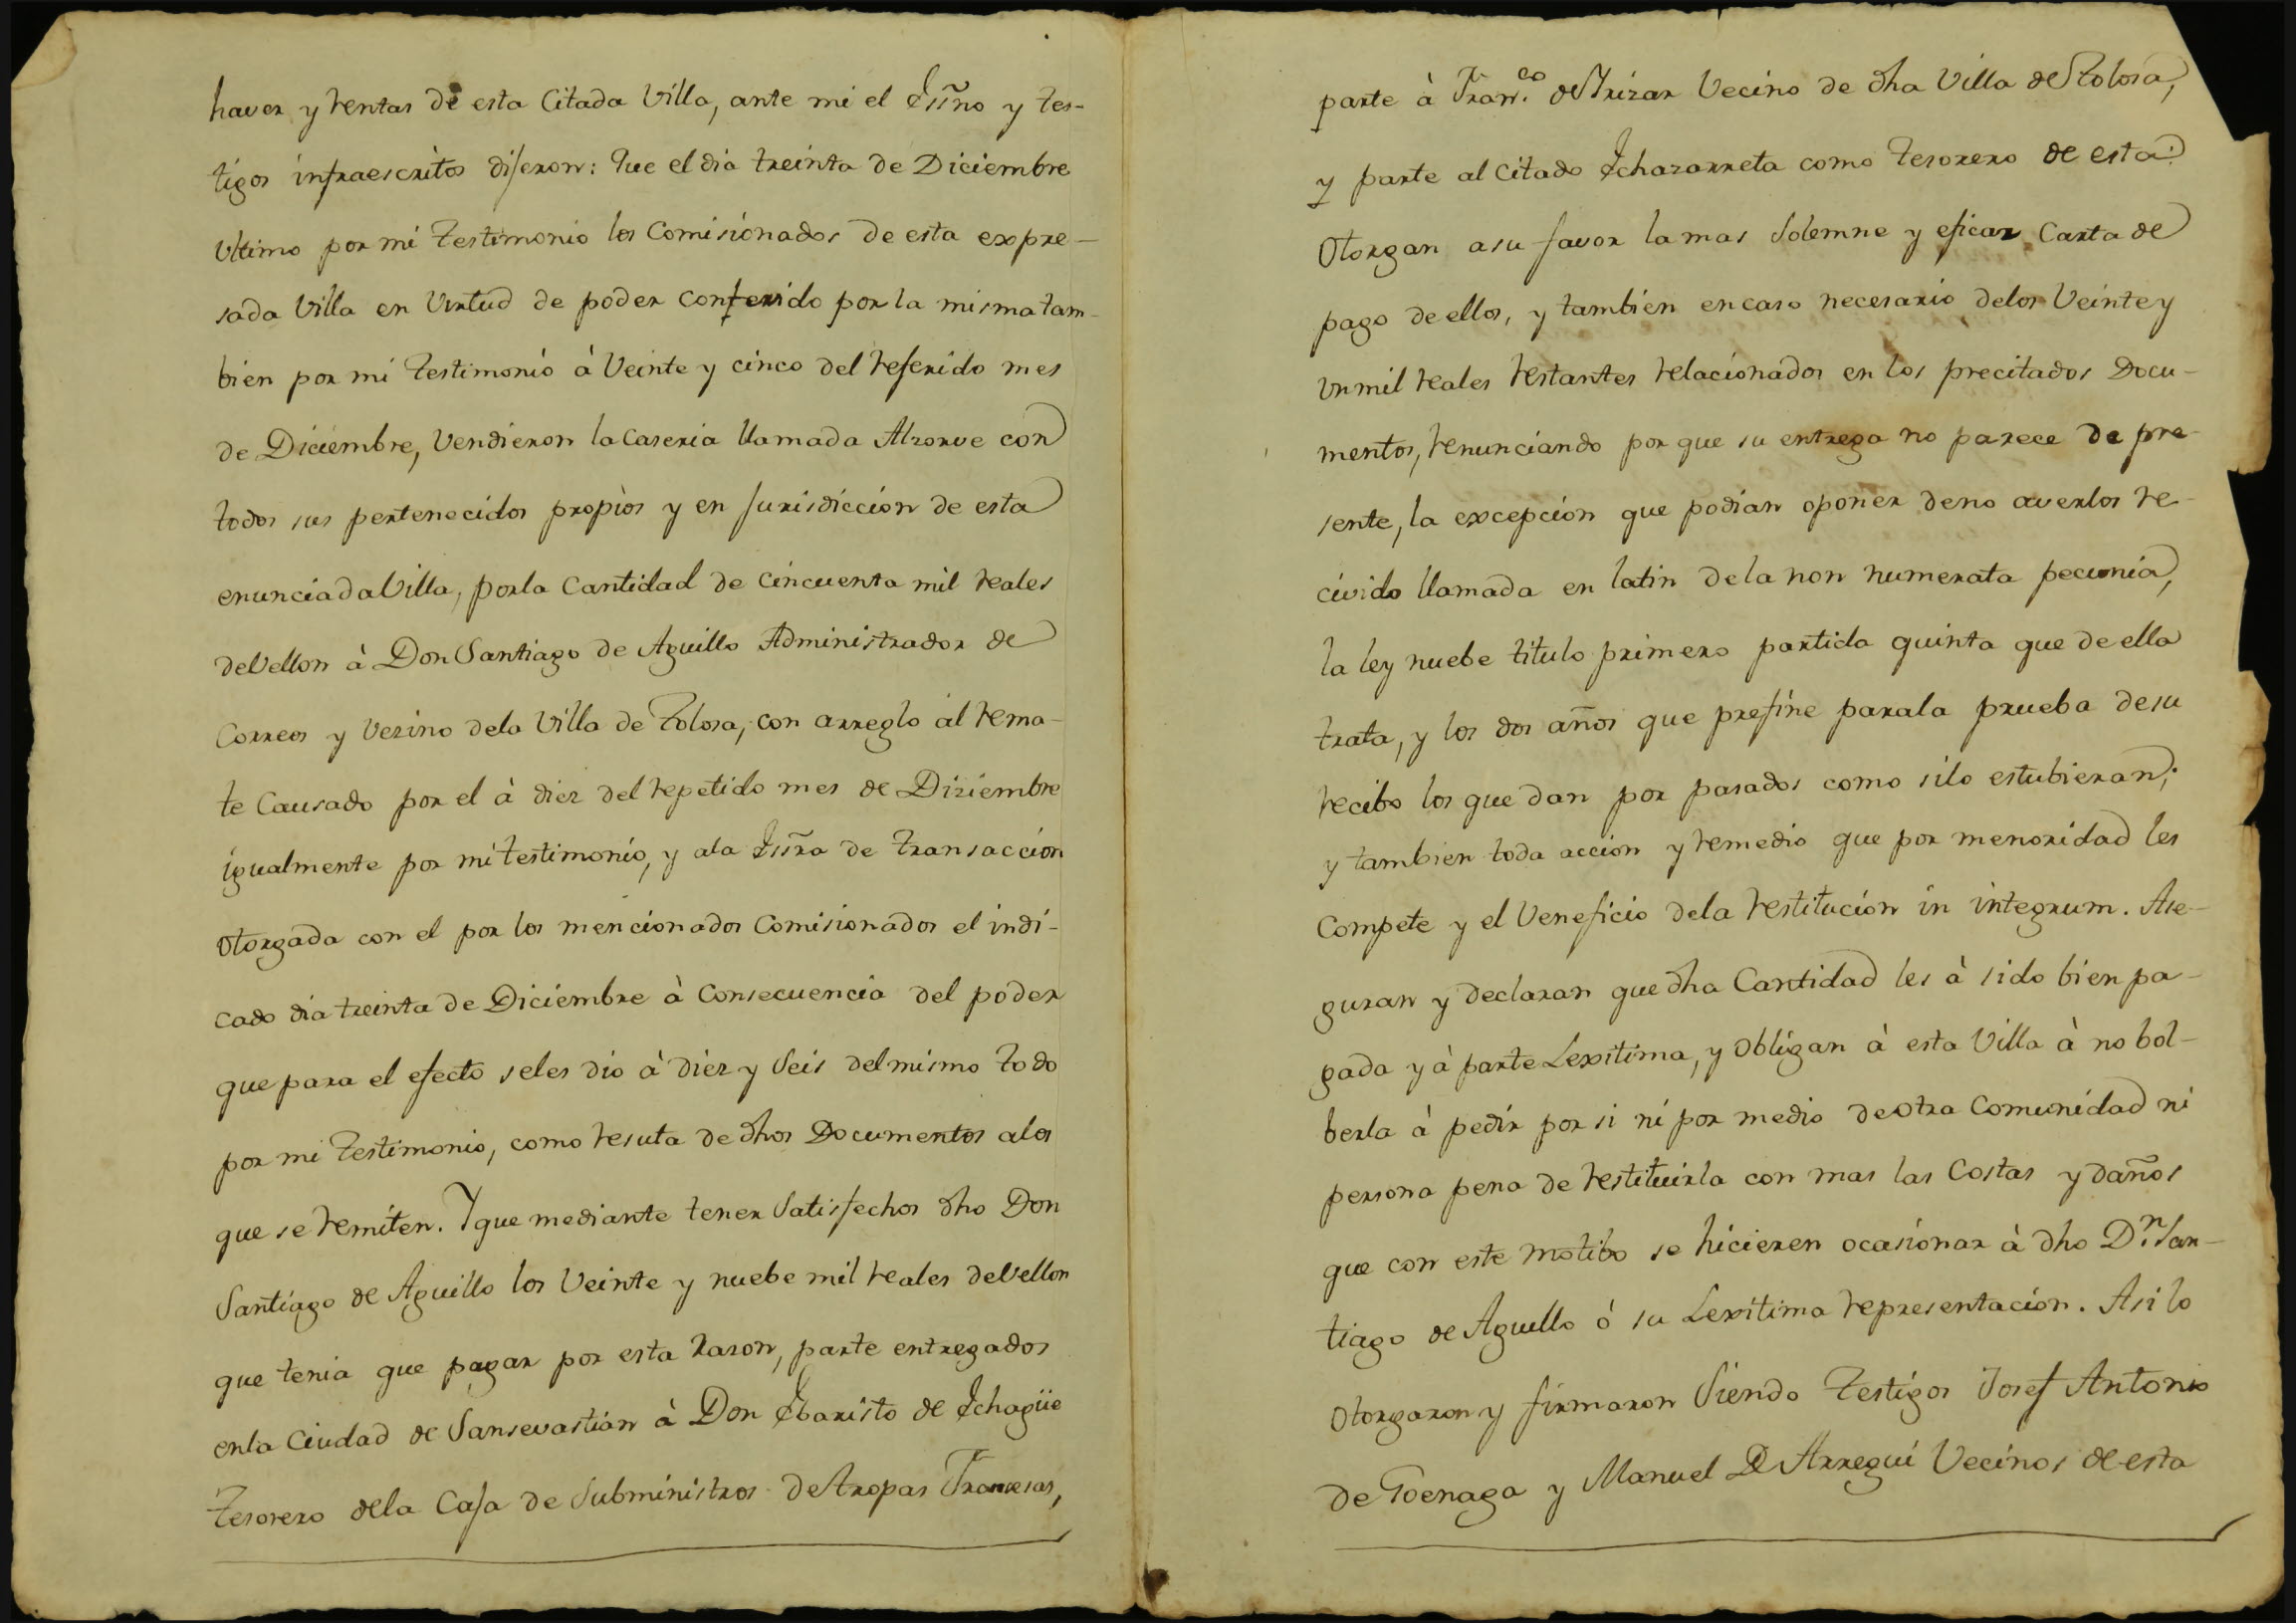 haver y rentas de esta Citada Villa, ante mi el Essño y tes-
tigos infraescritos dijeron: Que el dia treinta de Diciembre
Vltimo por mi testimonio los Comisionados de esta expre-
sada Villa en Virtud de poder conferido por la misma tam-
bien por mi testimonio à Veinte y cinco del referido mes
de Diciembre, Vendieron la Caseria llamada Alzorve con
todos sus pertenecidos propios y en jurisdiccion de esta
enunciada Villa, por la Cantidad de Cincuenta mil reales
de Vellon à Don Santiago de Aguillo Administrador de
Correos y Vezino dela Villa de Tolosa, con arreglo al rema-
te Causado por el à diez del repetido mes de Diziembre
igualmente por mi testimonio, y ala Essra de transaccion
otorgada con el por los mencionados Comisionados el indi-
cado dia treinta de Diciembre à Consecuencia del poder
que para el efecto seles dio à diez y Seis del mismo todo
por mi testimonio, como resuta de dhos Documentos alos
que se remiten. Y que mediante tener Satisfechos dho Don
Santiago de Aguillo los Veinte y nuebe mil reales de Vellon
que tenia que pagar por esta razon, parte entregados
enla Ciudad de Sansevastian à Don Ebaristo de Echagüe
Tesorero dela Caja de Subministros de tropas Francesas,
parte à Fran.co de Yrizar Vecino de dha Villa de Tolosa,
y parte al Citado Echazarreta como Tesorero de esta:
Otorgan a su favor la mas Solemne y eficaz Carta de
pago de ellos, y tambien en caso necesario delos Veinte y
Vn mil reales restantes relacionados en los precitados Docu-
mentos, renunciando por que su entrega no parece de pre-
sente, la excepcion que podian oponer deno averlos re-
civido llamada en latin dela non numerata pecunia,
la ley nuebe titulo primero partida quinta que de ella
trata, y los dos años que prefine parala prueba de su
recibo los que dan por pasados como silo estubieran;
y tambien toda accion y remedio que por menoridad les
Compete y el Veneficio dela restitucion in integrum. Ase-
guran y declaran que dha Cantidad les à sido bien pa-
gada y à parte Lexitima, y obligan à esta Villa à no bol-
berla à pedir por si ni por medio de otra Comunidad ni
persona pena de restituirla con mas las Costas y daños
que con este motibo se hicieren ocasionar à dho D.n San-
tiago de Aguello ó su Lexitima representacion. Asi lo
Otorgaron y firmaron Siendo Testigos Josef Antonio
de Goenaga y Manuel de Arregui Vecinos de esta